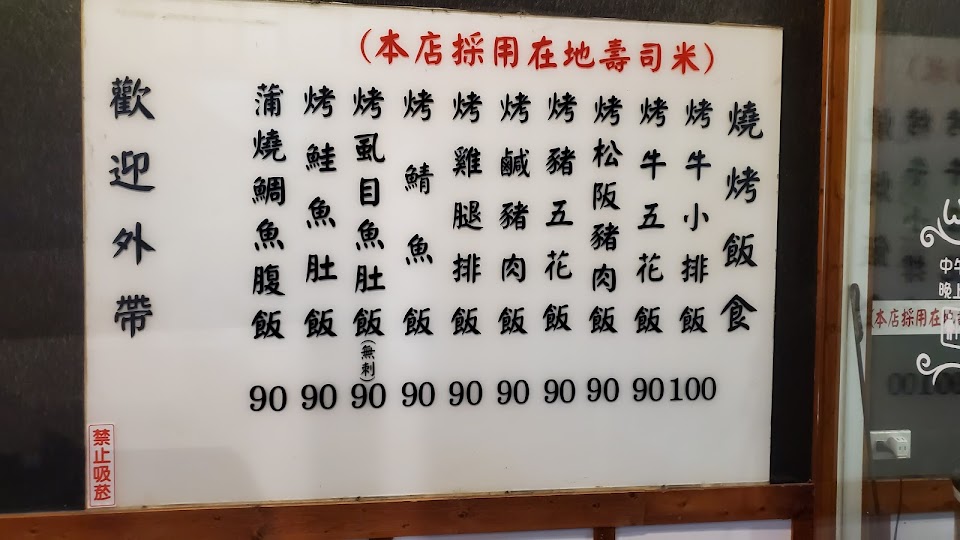 (本店採用在地壽司米)
燒烤飯食
烤牛小排飯 100
烤牛五花飯 90
烤松阪豬肉飯 90
烤豬五花飯 90
烤鹹豬肉飯 90
烤雞腿排飯 90
烤鯖魚飯 90
烤虱目魚肚飯(無刺) 90
烤鮭魚肚飯 90
蒲燒鯛魚腹飯 90
歡迎外帶
禁止吸菸
中午
晚上
本店採用在地